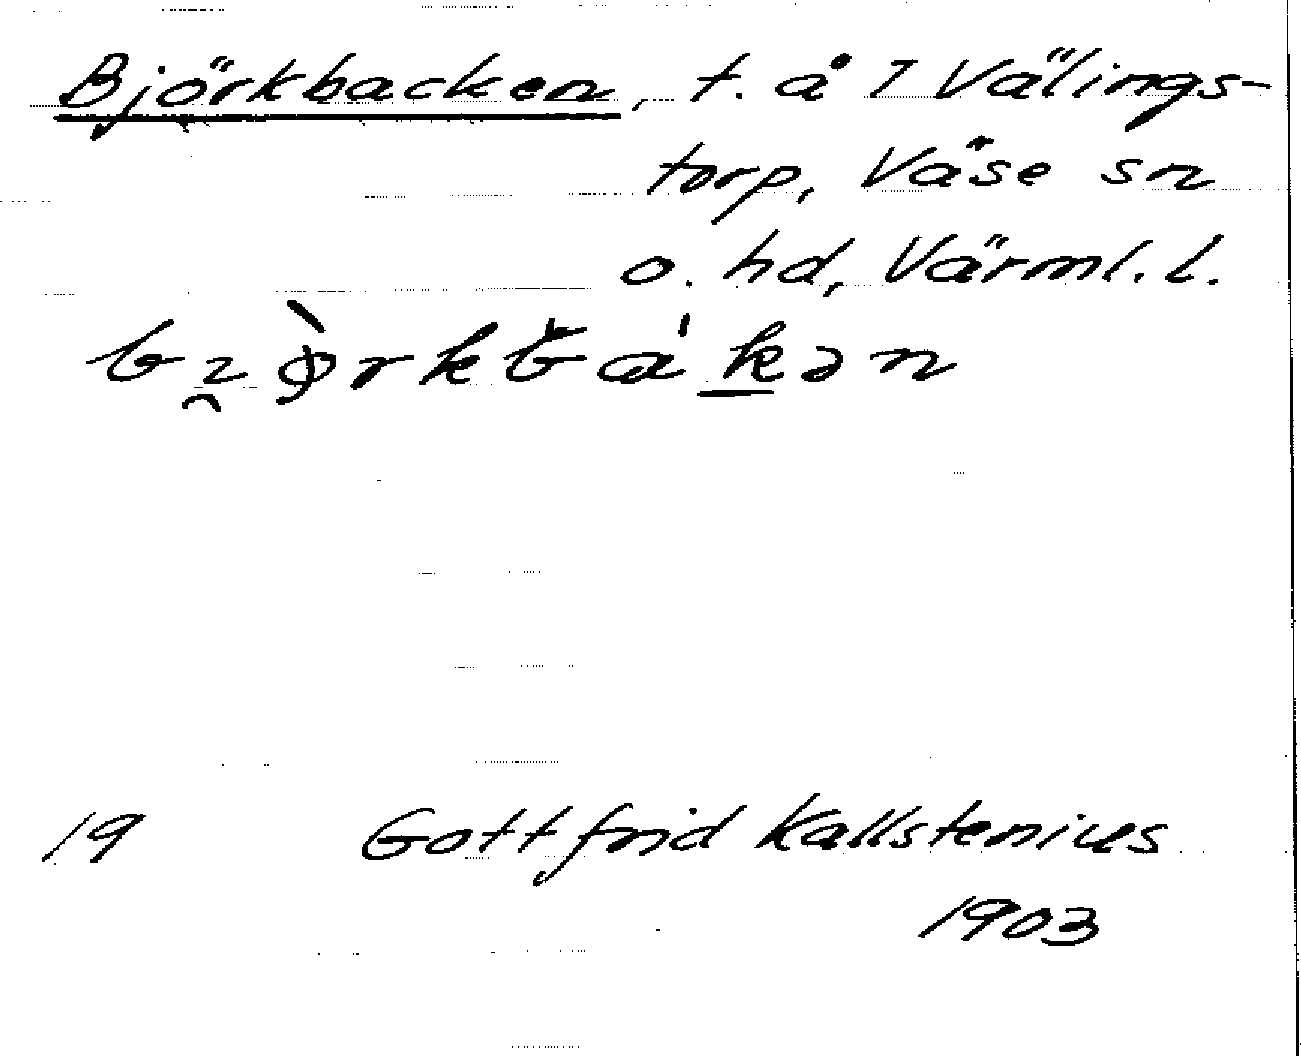 Björkbacken, t. å 7 Välings-
torp, Väse sn
o. hd, Värml. l.
19 Gottfrid Kallstenius
1903